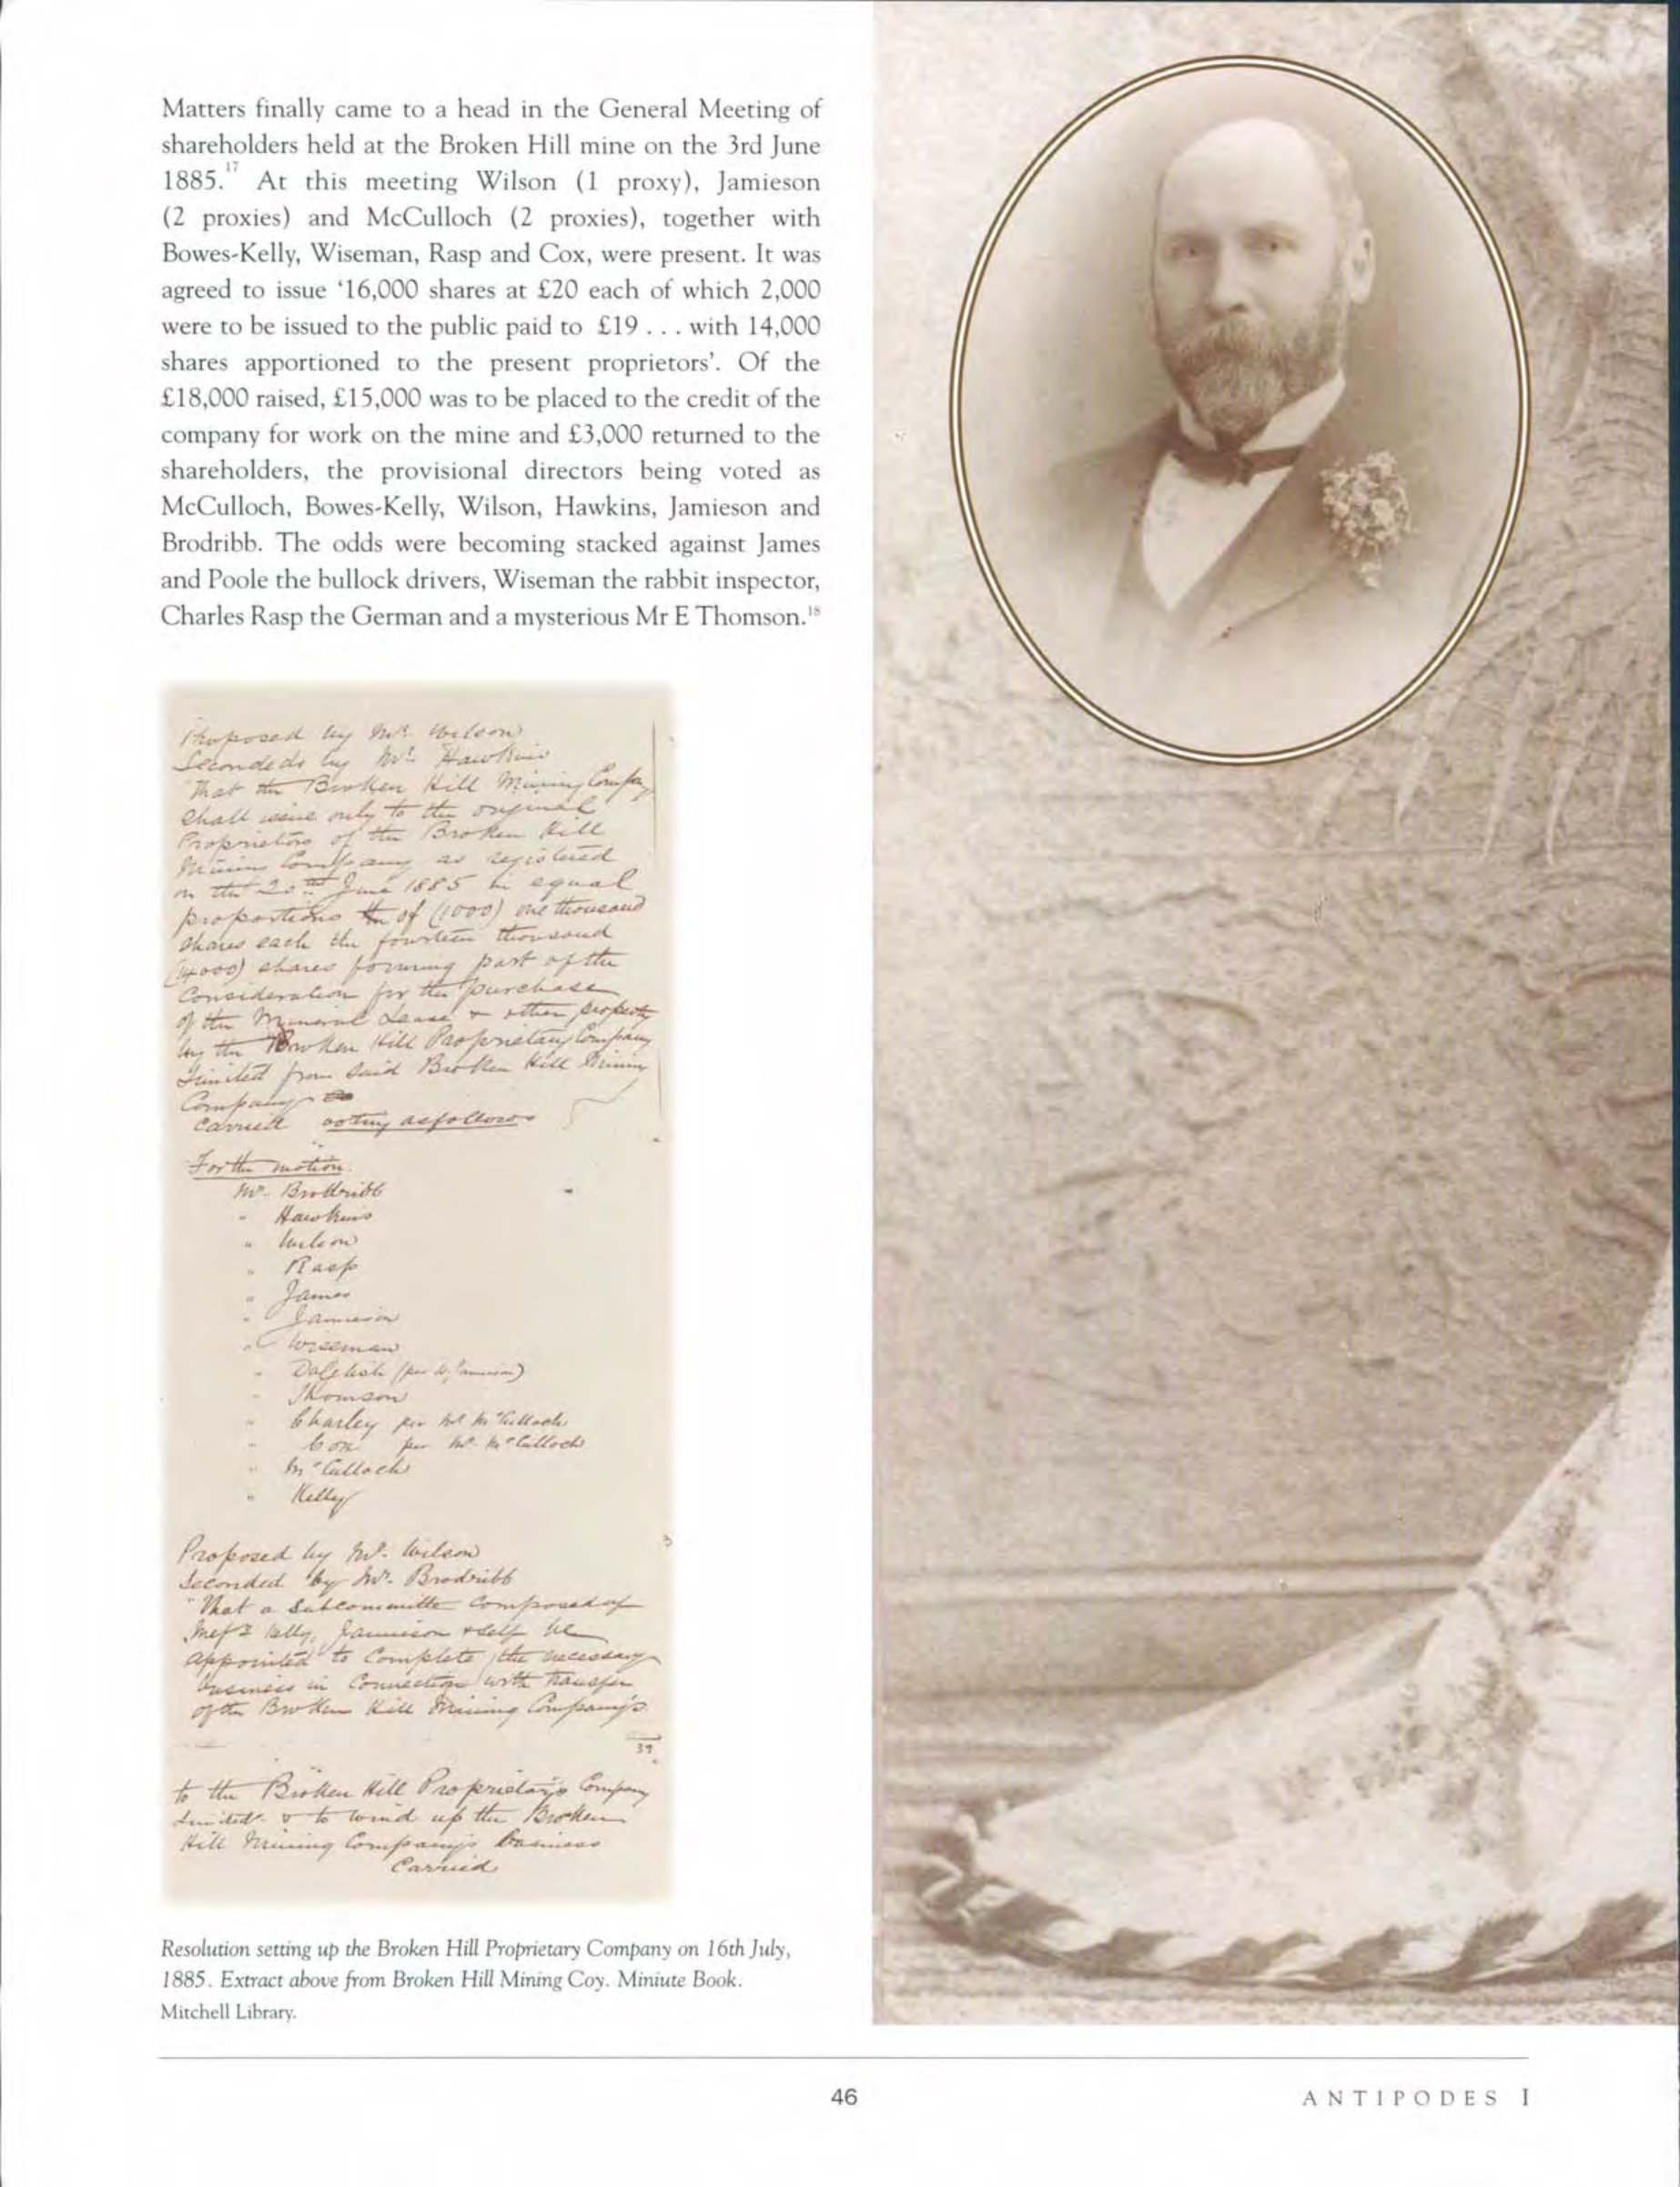 Matters finally came to a head in the General Meeting of
shareholders held at the Broken Hill mine on the 3rd June
1885.17 At this meeting Wilson (1 proxy), Jamieson
(2 proxies) and McCulloch (2 proxies), together with
Bowes-Kelly, Wiseman, Rasp and Cox, were present. It was
agreed to issue ‘16,000 shares at £20 each of which 2,000
were to be issued to the public paid to £19 . . . with 14,000
shares apportioned to the present proprietors’. Of the
£18,000 raised, £15,000 was to be placed to the credit of the
company for work on the mine and £3,000 returned to the
shareholders, the provisional directors being voted as
McCulloch, Bowes-Kelly, Wilson, Hawkins, Jamieson and
Brodribb. The odds were becoming stacked against James
and Poole the bullock drivers, Wiseman the rabbit inspector,
Charles Rasp the German and a mysterious Mr E Thomson.18
Proposed by Mr. Wilson
Seconded by Mr. Hawkins
That the Broken Hill Mining Company
shall issue only to the original
Proprietors of the Broken Hill
Mining Company as registered
on the 20th June 1885 in equal
proportions of (1000) one thousand
shares each the fourteen thousand
(14000) shares forming part of the
Consideration for the purchase
of the Mineral Lease & other property
by the Broken Hill Proprietary Company
Limited from said Broken Hill Mining
Company
Carried voting as follows
For the motion.
Mr. Brodribb
" Hawkins
" Wilson
" Rasp
" James
" Jamieson
" Wiseman
" Dalglish (per W. Jamieson)
" Thomson
" Charley per Mr McCulloch
" Cox per Mr. McCulloch
" McCulloch
" Kelly
Proposed by Mr. Wilson
Seconded by Mr. Brodribb
"That a Subcommittee Composed of
Kelly, Jamieson & self be
appointed to Complete the necessary
business in Connection with transfer
of the Broken Hill Mining Company's
39
to the Broken Hill Proprietary's Company
Limited & to wind up the Broken
Hill Mining Company's business
Carried
Resolution setting up the Broken Hill Proprietary Company on 16th July,
1885. Extract above from Broken Hill Mining Coy. Miniute Book.
Mitchell Library.
46
ANTIPODES I